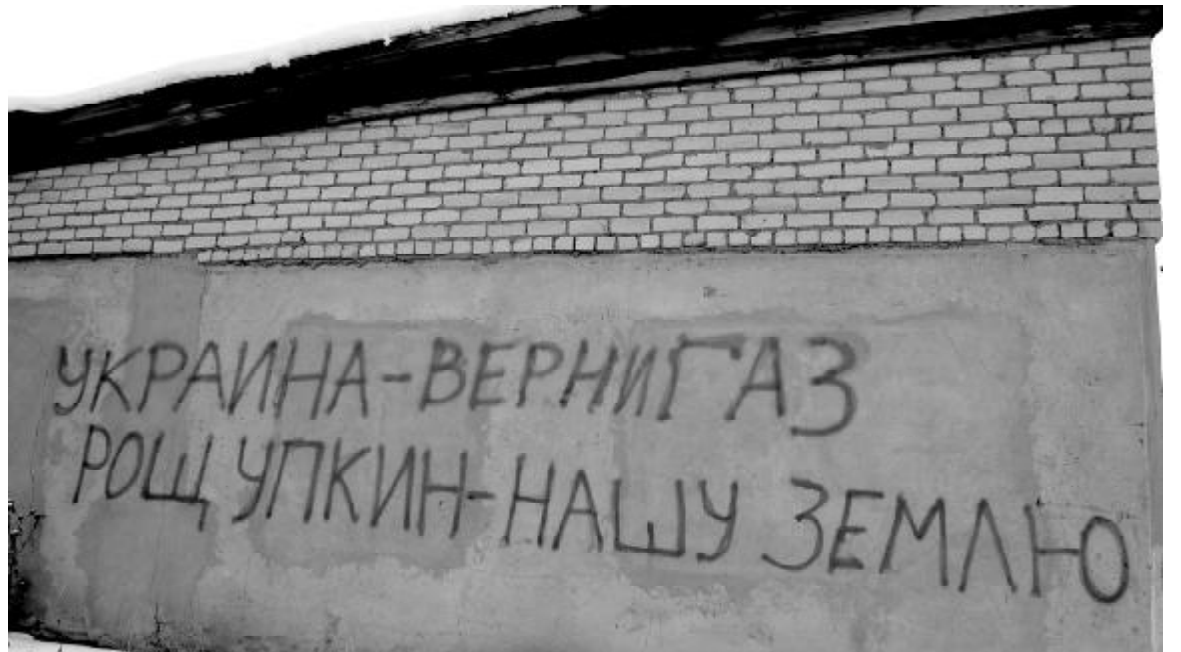 УКРАИНА-ВЕРНИ ГАЗ
РОЩУПКИН-НАШУ ЗЕМЛЮ